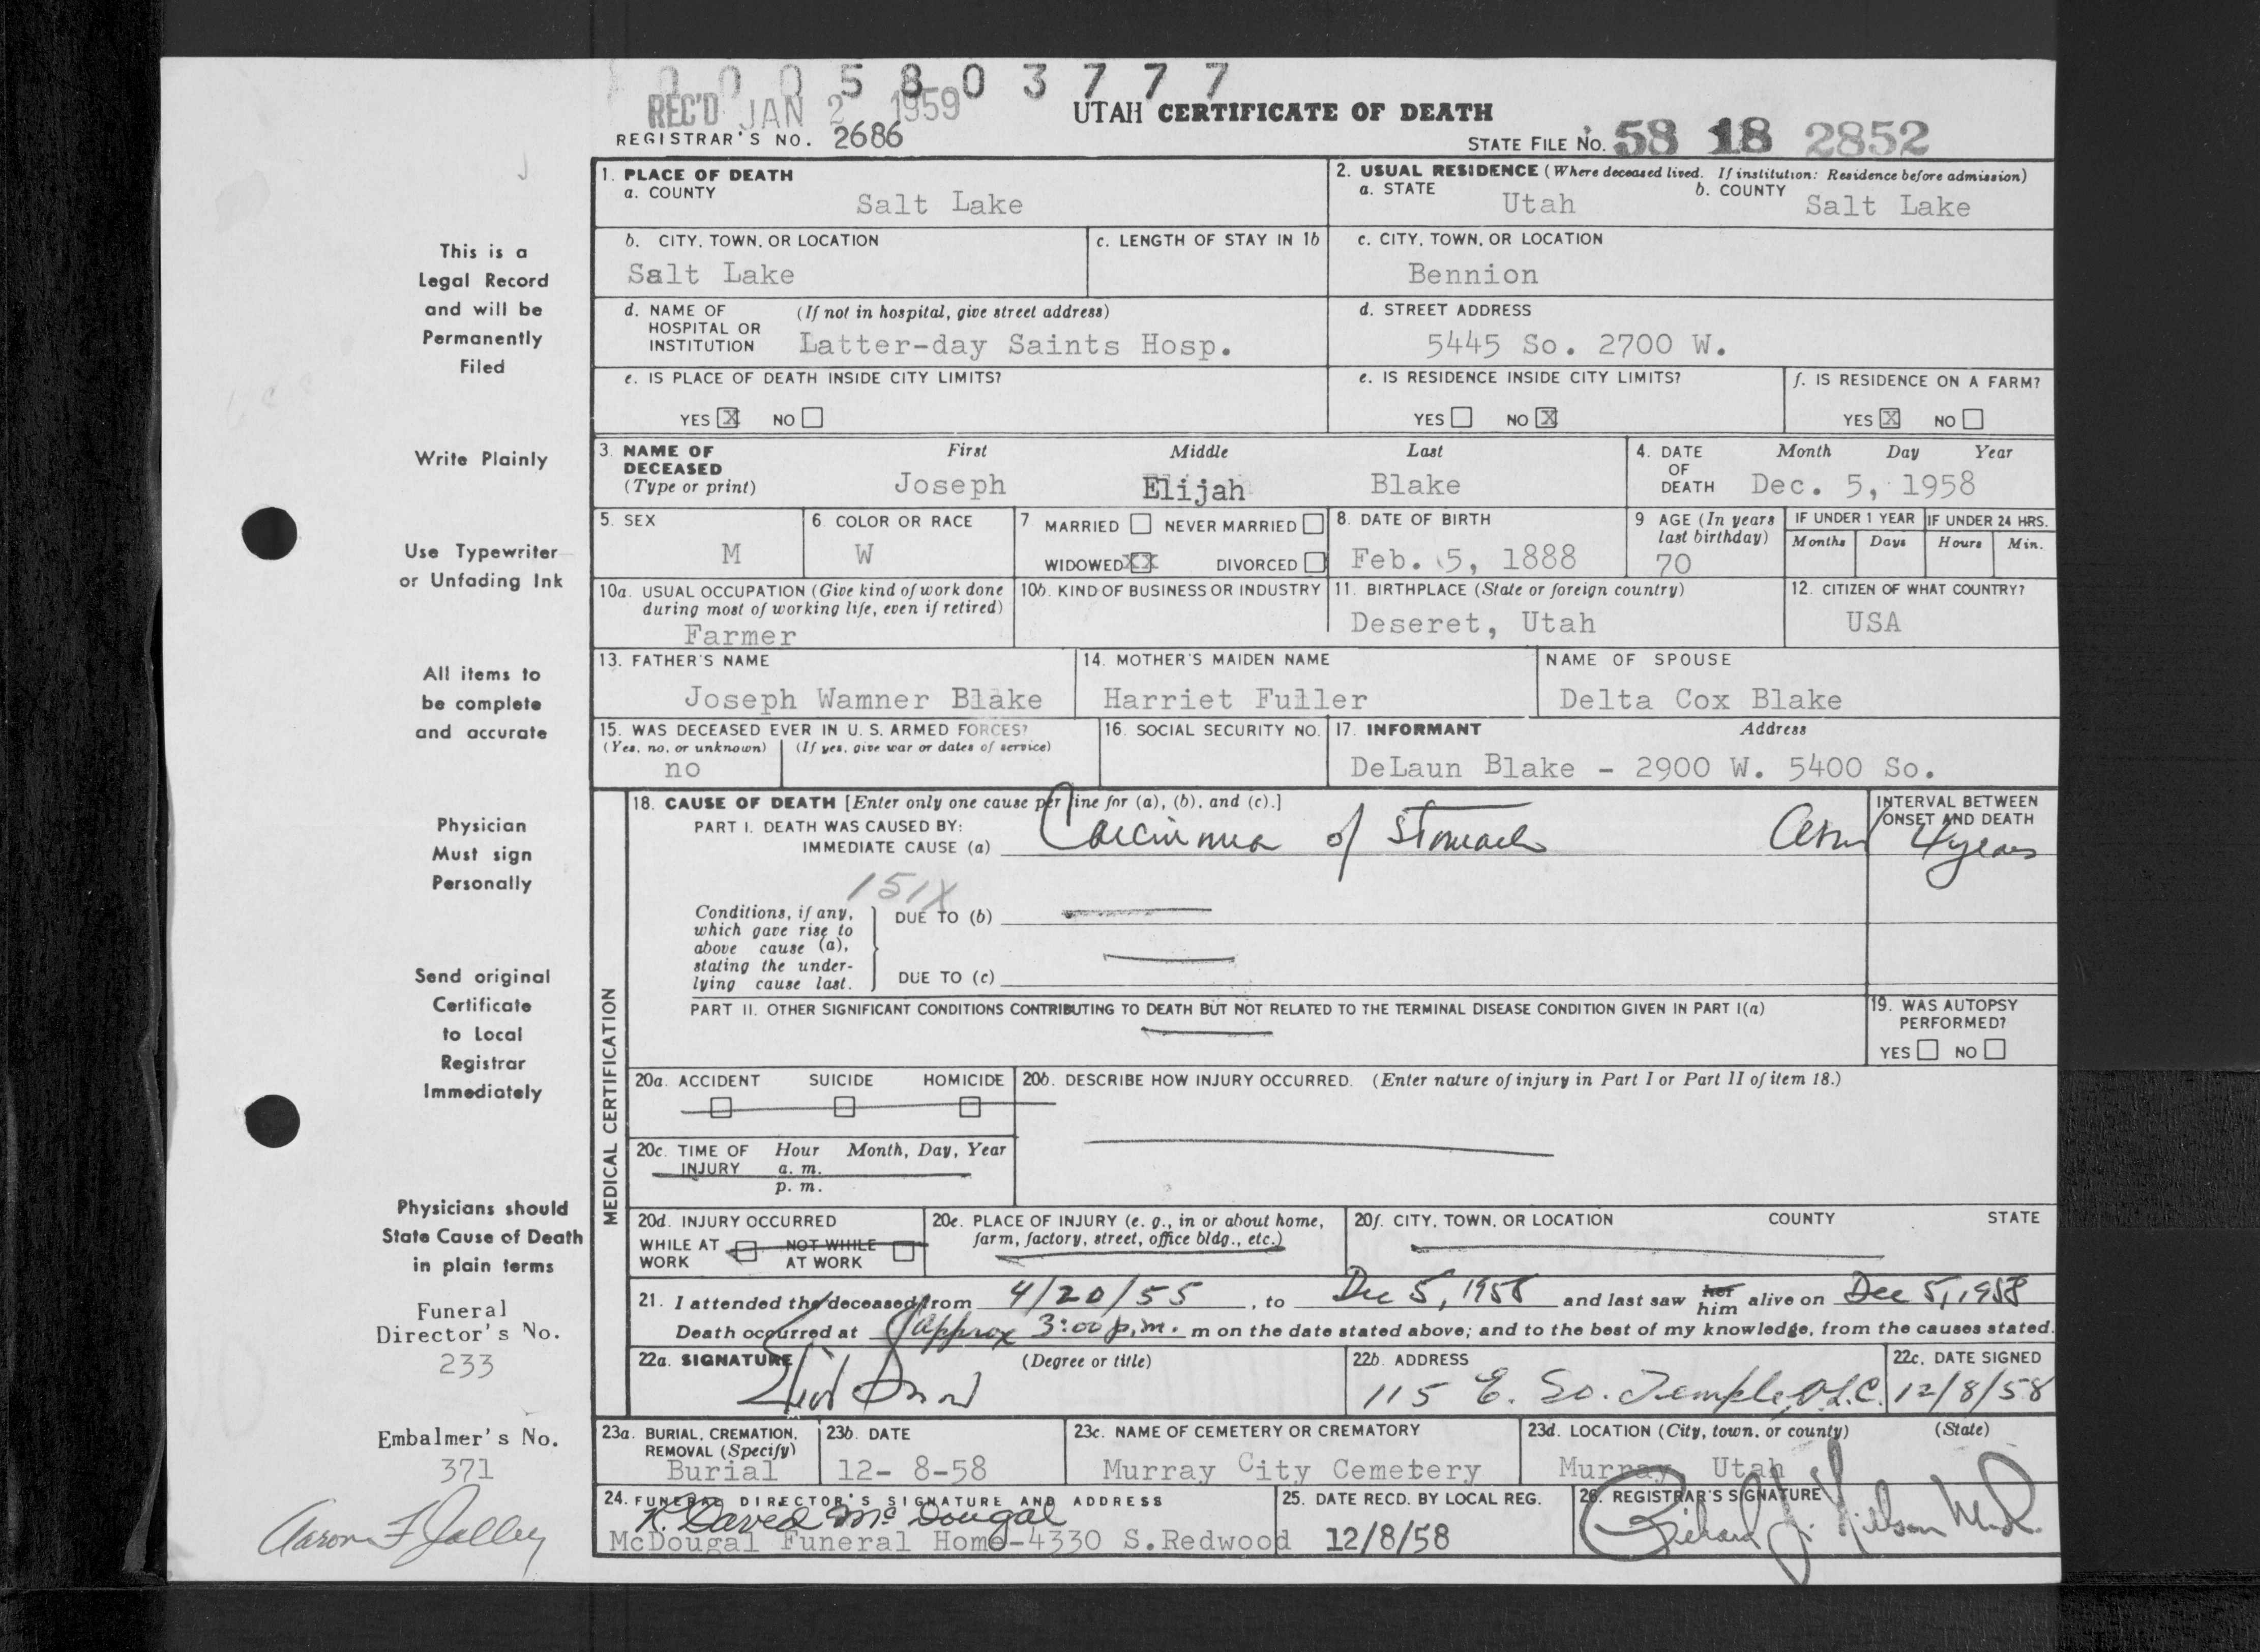 0 0 0 5 8 0 3 7 7 7
REC'D JAN 2 1959
UTAH CERTIFICATE OF DEATH
REGISTRAR'S NO. 2686
STATE FILE NO. 58 18 2852
This is a
Legal Record
and will be
Permanently
Filed
Write Plainly
Use Typewriter
or Unfading Ink
All items to
be complete
and accurate
Physician
Must sign
Personally
Send original
Certificate
to Local
Registrar
Immediately
Physicians should
State Cause of Death
in plain terms
Funeral
Director's No.
233
Embalmer's No.
371
Aaron F Jolley
1. PLACE OF DEATH
a. COUNTY
Salt Lake
2. USUAL RESIDENCE (Where deceased lived. If institution: Residence before admission)
a. STATE b. COUNTY
Utah Salt Lake
b. CITY, TOWN, OR LOCATION
Salt Lake
c. LENGTH OF STAY IN 1b
c. CITY, TOWN, OR LOCATION
Bennion
d. NAME OF (If not in hospital, give street address)
HOSPITAL OR
INSTITUTION Latter-day Saints Hosp.
d. STREET ADDRESS
5445 So. 2700 W.
e. IS PLACE OF DEATH INSIDE CITY LIMITS?
YES X NO
e. IS RESIDENCE INSIDE CITY LIMITS?
YES NO X
f. IS RESIDENCE ON A FARM?
YES X NO
3. NAME OF First Middle Last
DECEASED
(Type or print) Joseph Elijah Blake
4. DATE Month Day Year
OF
DEATH Dec. 5, 1958
5. SEX
M
6. COLOR OR RACE
W
7. MARRIED NEVER MARRIED
WIDOWED XX DIVORCED
8. DATE OF BIRTH
Feb. 5, 1888
9 AGE (In years
last birthday)
70
IF UNDER 1 YEAR IF UNDER 24 HRS.
Months Days Hours Min.
10a. USUAL OCCUPATION (Give kind of work done
during most of working life, even if retired)
Farmer
10b. KIND OF BUSINESS OR INDUSTRY
11. BIRTHPLACE (State or foreign country)
Deseret, Utah
12. CITIZEN OF WHAT COUNTRY?
USA
13. FATHER'S NAME
Joseph Wamner Blake
14. MOTHER'S MAIDEN NAME
Harriet Fuller
NAME OF SPOUSE
Delta Cox Blake
15. WAS DECEASED EVER IN U. S. ARMED FORCES?
(Yes, no, or unknown) (If yes, give war or dates of service)
no
16. SOCIAL SECURITY NO.
17. INFORMANT Address
DeLaun Blake - 2900 W. 5400 So.
MEDICAL CERTIFICATION
18. CAUSE OF DEATH [Enter only one cause per line for (a), (b), and (c).]
PART I. DEATH WAS CAUSED BY:
IMMEDIATE CAUSE (a) Carcinoma of Stomach
INTERVAL BETWEEN
ONSET AND DEATH
4 years
151X
Conditions, if any,
which gave rise to
above cause (a),
stating the under-
lying cause last.
DUE TO (b)
DUE TO (c)
PART II. OTHER SIGNIFICANT CONDITIONS CONTRIBUTING TO DEATH BUT NOT RELATED TO THE TERMINAL DISEASE CONDITION GIVEN IN PART I(a)
19. WAS AUTOPSY
PERFORMED?
YES NO
20a. ACCIDENT SUICIDE HOMICIDE
20b. DESCRIBE HOW INJURY OCCURRED. (Enter nature of injury in Part I or Part II of item 18.)
20c. TIME OF Hour Month, Day, Year
INJURY a. m.
p. m.
20d. INJURY OCCURRED
WHILE AT NOT WHILE
WORK AT WORK
20e. PLACE OF INJURY (e. g., in or about home,
farm, factory, street, office bldg., etc.)
20f. CITY, TOWN, OR LOCATION COUNTY STATE
21. I attended the deceased from 4/20/55, to Dec 5, 1958 and last saw her him alive on Dec 5, 1958
Death occurred at approx 3:00 p.m. m on the date stated above; and to the best of my knowledge, from the causes stated.
22a. SIGNATURE (Degree or title)
22b. ADDRESS
115 E. So. Temple, S.L.C.
22c. DATE SIGNED
12/8/58
23a. BURIAL, CREMATION,
REMOVAL (Specify)
Burial
23b. DATE
12- 8-58
23c. NAME OF CEMETERY OR CREMATORY
Murray City Cemetery
23d. LOCATION (City, town, or county) (State)
Murray Utah
24. FUNERAL DIRECTOR'S SIGNATURE AND ADDRESS
K. David McDougal
McDougal Funeral Home-4330 S.Redwood
25. DATE RECD. BY LOCAL REG.
12/8/58
26. REGISTRAR'S SIGNATURE
Richard J. Nelson M.D.